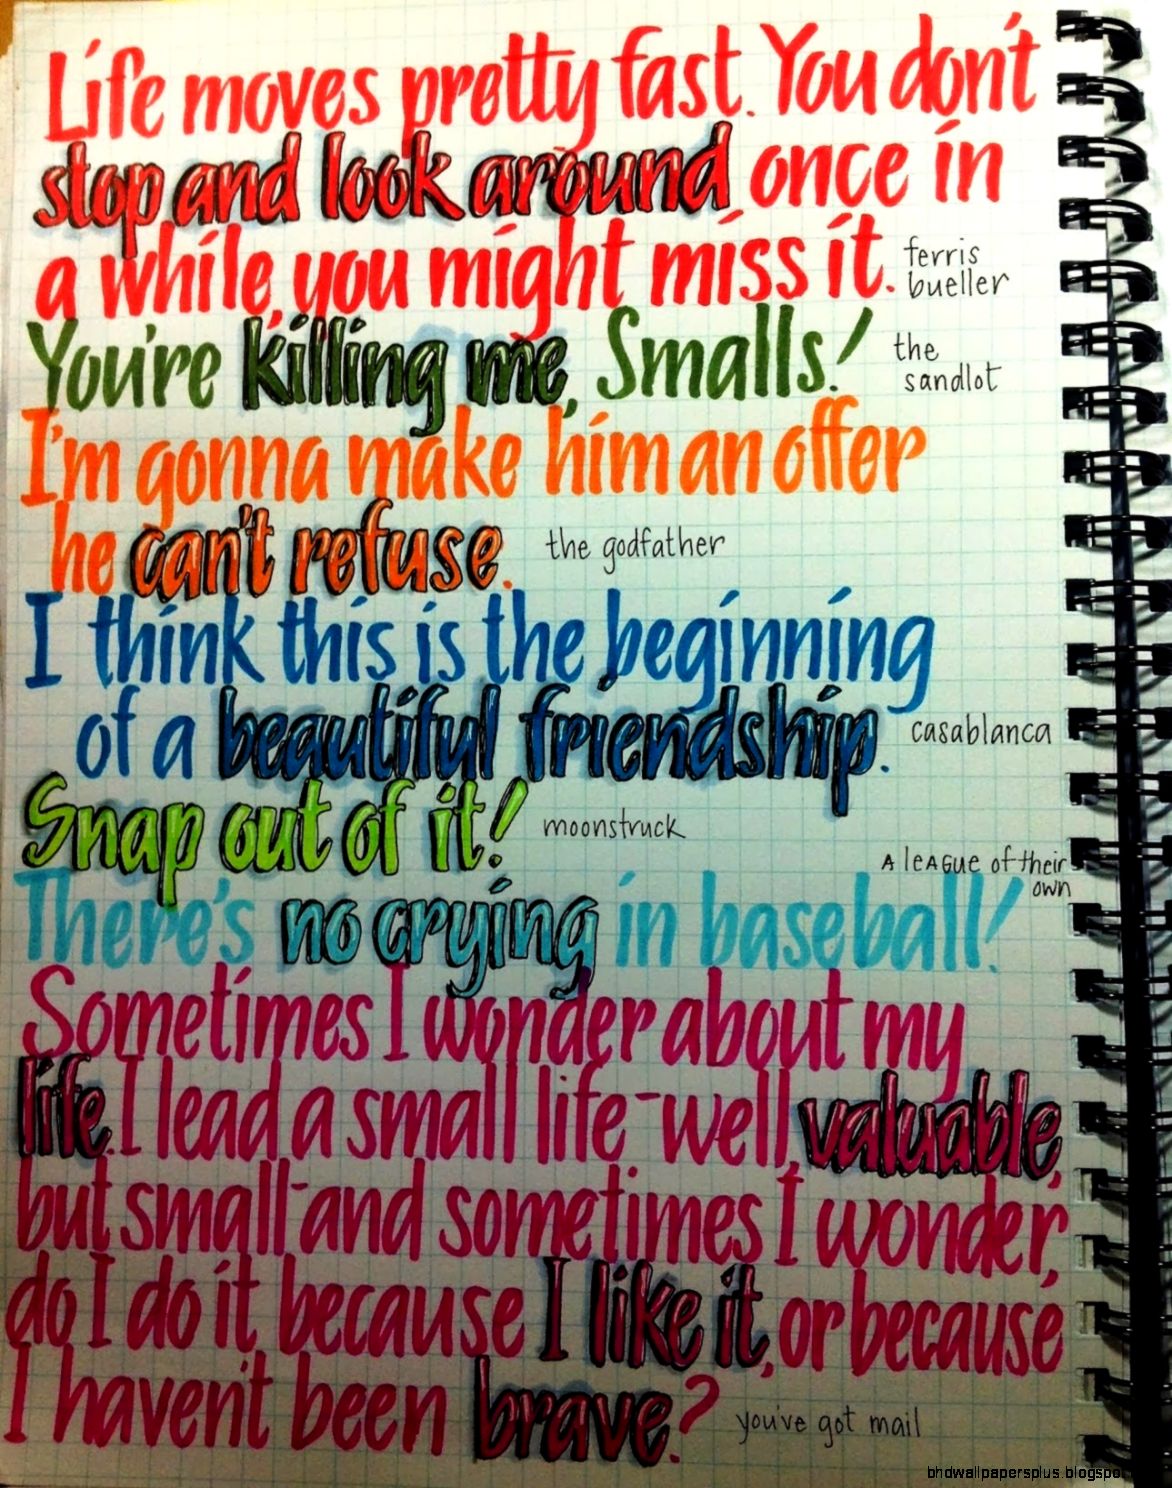 Life moves pretty fast. You don't
stop and look around once in
a while, you might miss it.
ferris
bueller
You're killing me, Smalls!
the
sandlot
I'm gonna make him an offer
he can't refuse.
the godfather
I think this is the beginning
of a beautiful friendship.
casablanca
Snap out of it!
moonstruck
A leAGue of their
own
There's no crying in baseball!
Sometimes I wonder about my
life. I lead a small life-well, valuable,
but small-and sometimes I wonder,
do I do it because I like it, or because
I haven't been brave?
you've got mail
bhdwallpapersplus.blogspo